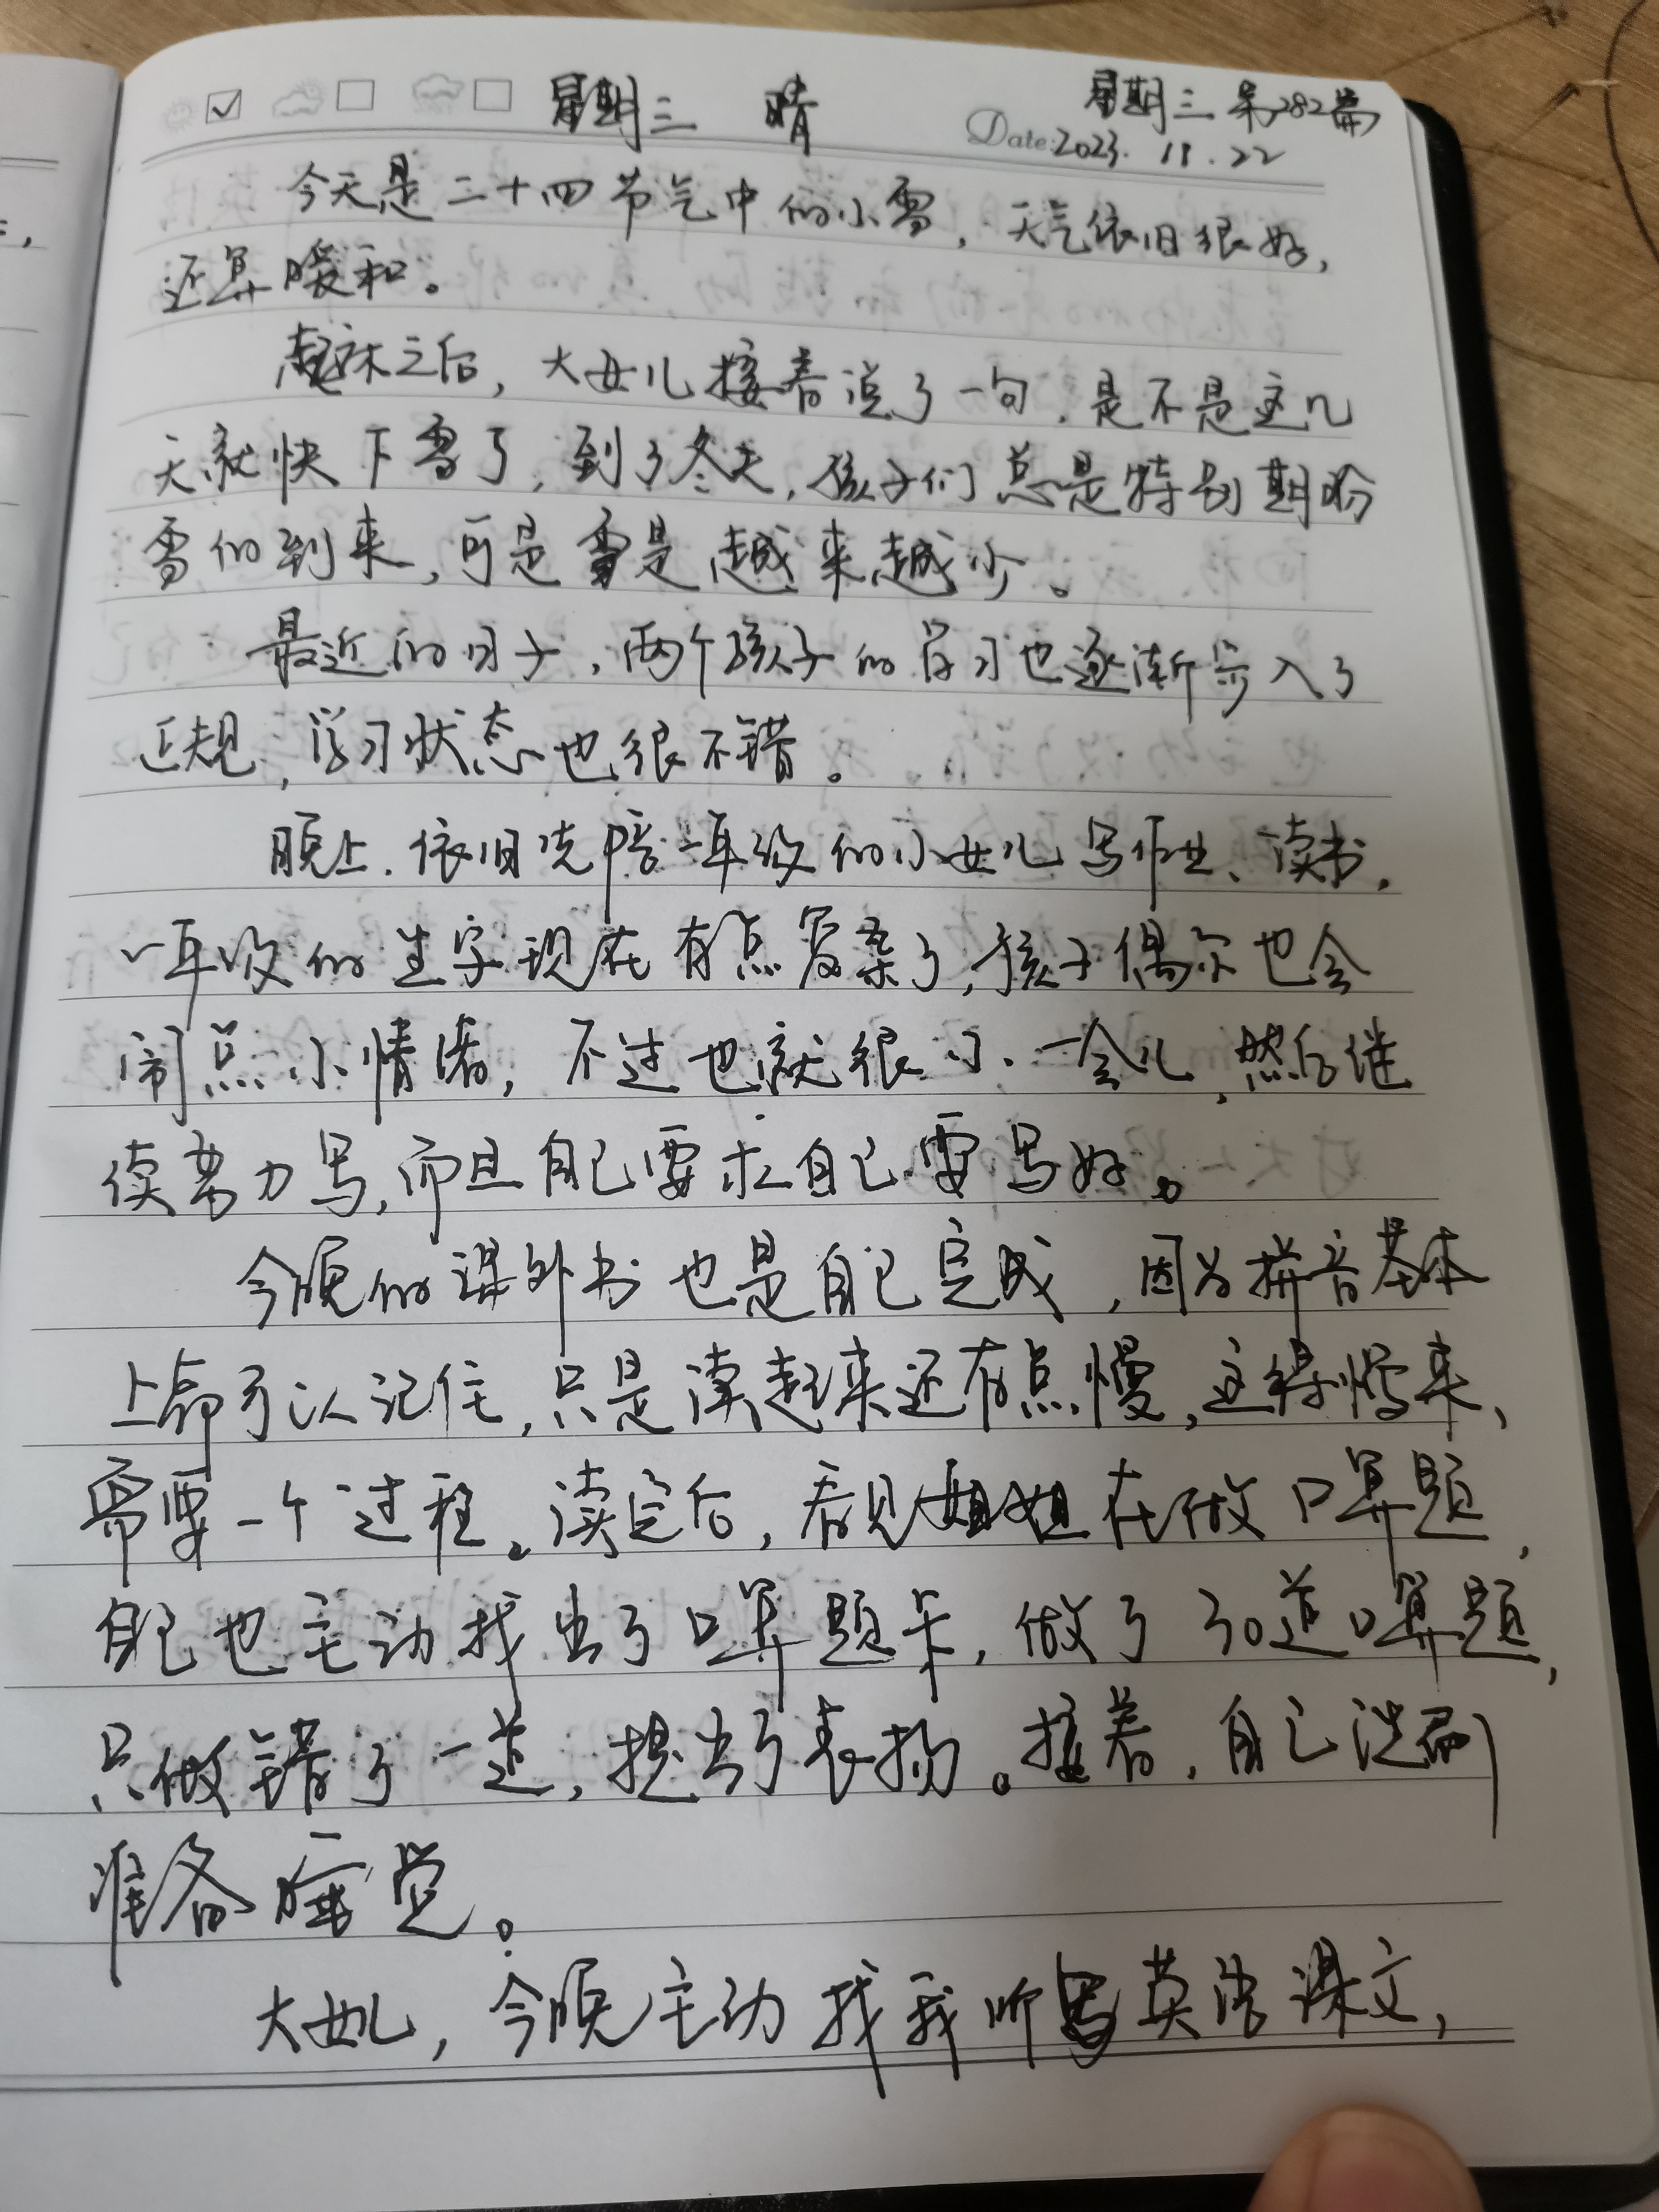 星期三 晴
星期三 第282篇
Date: 2023. 11. 22
今天是二十四节气中的小雪，天气依旧很好，
还算暖和。
起床之后，大女儿接着说了一句，是不是这几
天就快下雪了，到了冬天，孩子们总是特别期盼
雪的到来，可是雪是越来越少。
最近的日子，两个孩子的学习也逐渐步入了
正规，学习状态也很不错。
晚上，依旧先陪一年级的小女儿写作业、读书，
一年级的生字现在有点复杂了，孩子偶尔也会
闹点小情绪，不过也就很小一会儿，然后继
续努力写，而且自己要求自己要写好。
今晚的课外书也是自己完成，因为拼音基本
上都可以记住，只是读起来还有点慢，这得慢来，
需要一个过程。读完后，看见姐姐在做口算题，
自己也主动找出了口算题卡，做了30道口算题，
只做错了一道，提出了表扬。接着，自己洗刷
准备睡觉。
大女儿，今晚主动找我听写英语课文，